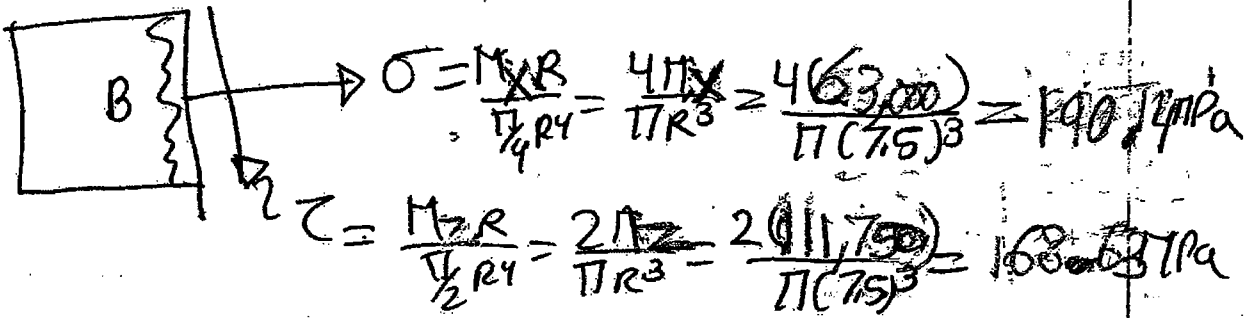 B σ = MxR / (π/4 R⁴) = 4Mx / πR³ = 4(63,000) / π(7.5)³ = 190.14 MPa
τ = MzR / (π/2 R⁴) = 2Mz / πR³ = 2(111,750) / π(7.5)³ = 168.63 MPa